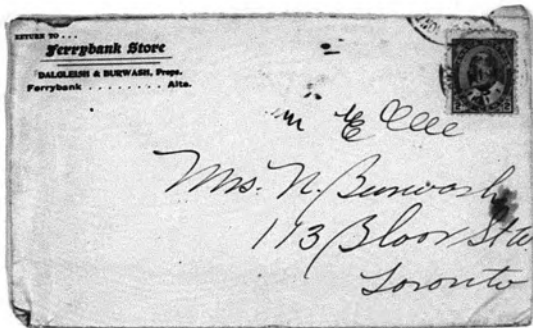 RETURN TO ...
Ferrybank Store
DALGLEISH & BURWASH, Props.
Ferrybank . . . . . . . . . Alta.
Mrs. N. Burwash
113 Bloor St W.
Toronto